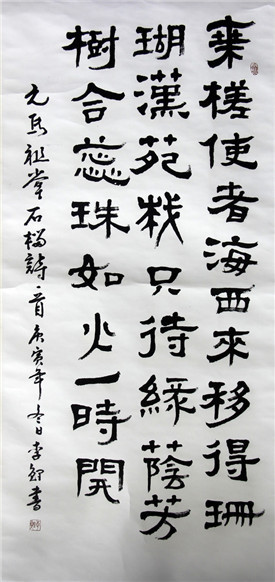 乘槎使者海西來移得珊
瑚漢苑栽只待緑蔭芳
樹合蕊珠如火一時開
元馬祖常石榴詩一首庚寅年冬日李書